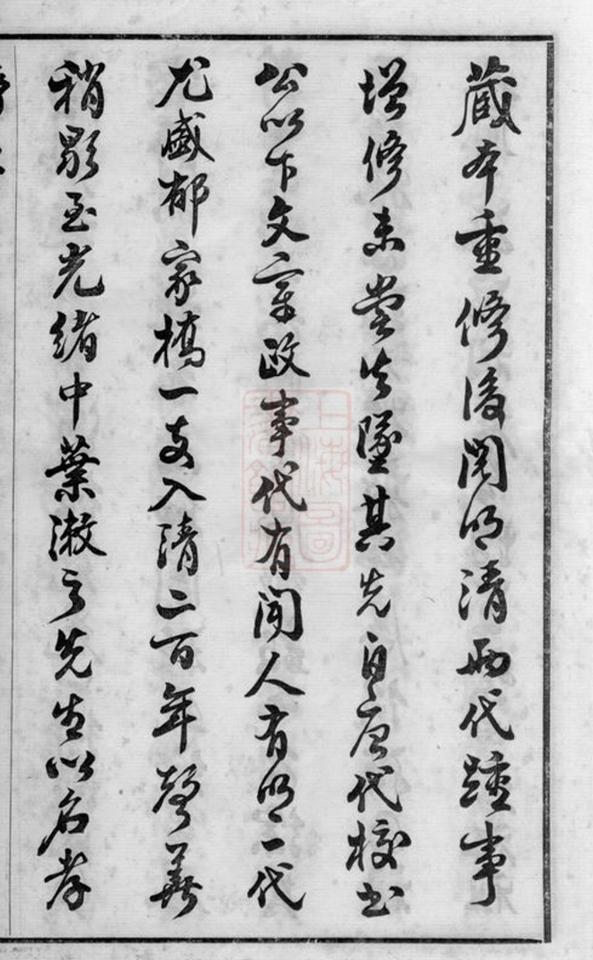 藏本重修後閱明清兩代踵事
增修未嘗失墜其先自唐代校書
公以下文章政事代有聞人有明一代
尤盛郁家橋一支入清二百年聲華
稍歇至光緒中葉漱六先生以名孝